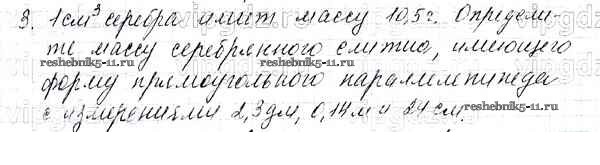 3. 1 см³ серебра имеет массу 10,5 г. Определи-
те массу серебрянного слитка, имеющего
reshebnik5-11.ru reshebnik5-11.ru
форму прямоугольного параллелепипеда
с измерениями 2,3 дм, 0,14 м и 24 см.
reshebnik5-11.ru